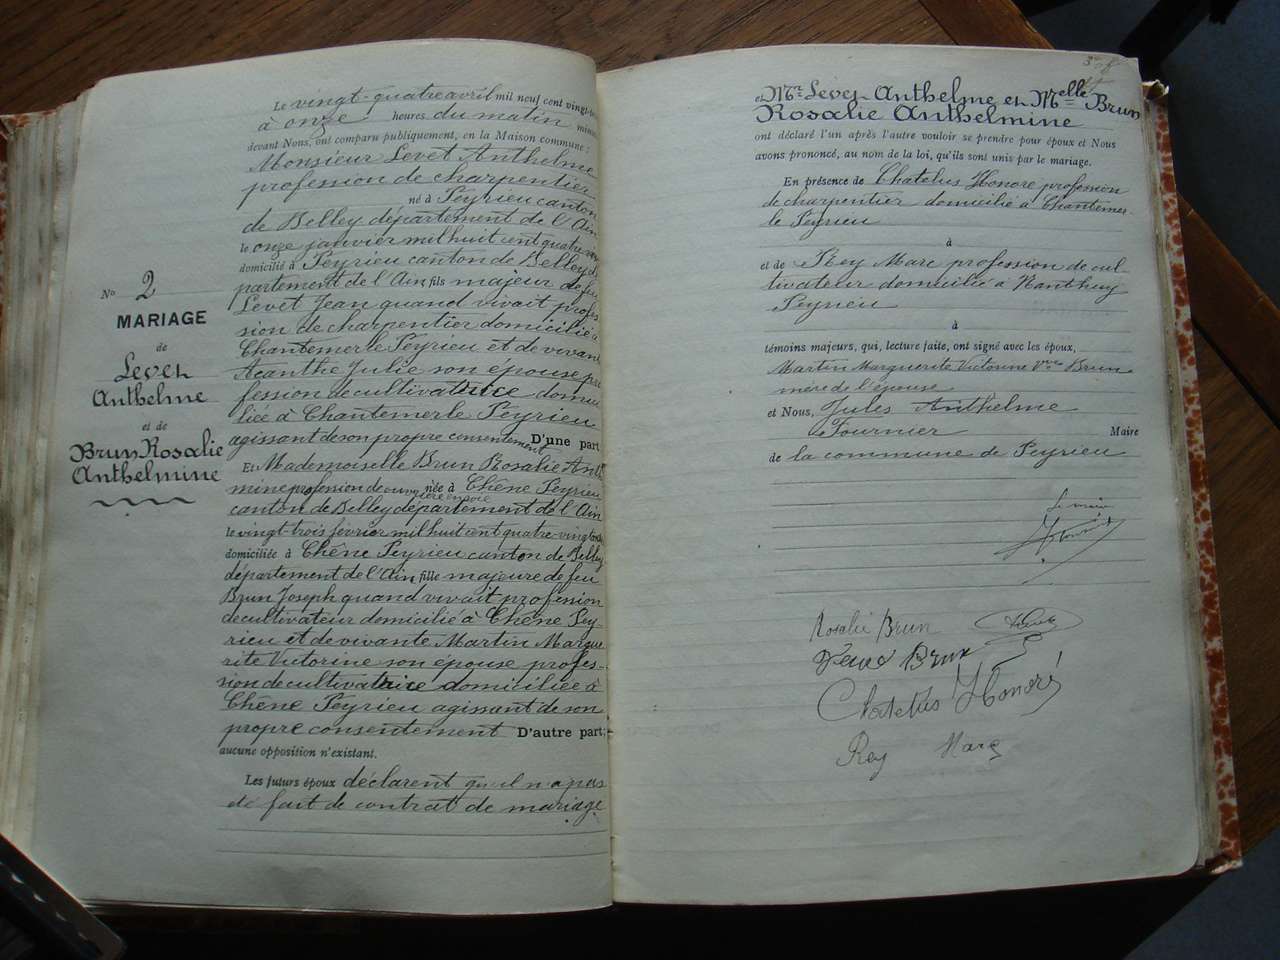 Le vingt-quatre avril mil neuf cent vingt-
à onze heures du matin
devant Nous, ont comparu publiquement, en la Maison commune:
Monsieur Levet Anthelme
profession de charpentier
né à Peyrieu canton
de Belley département de l'Ain
le onze janvier mil huit cent quatre
domicilié à Peyrieu canton de Belley dé
partement de l'Ain fils majeur de feu
Levet Jean quand vivait profes
sion de charpentier domicilié à
Chantemerle Peyrieu et de vivante
Acanthe Julie son épouse pro
fession de cultivatrice domici
liée à Chantemerle Peyrieu
agissant de son propre consentement D'une part
Et Mademoiselle Brun Rosalie Anth
mine profession de ouvrière en soie née à Chêne Peyrieu
canton de Belley département de l'Ain
le vingt-trois février mil huit cent quatre-vingt
domiciliée à Chêne Peyrieu canton de Belley
département de l'Ain fille majeure de feu
Brun Joseph quand vivait profession
de cultivateur domicilié à Chêne Pey
rieu et de vivante Martin Margue
rite Victorine son épouse profes-
sion de cultivatrice domiciliée à
Chêne Peyrieu agissant de son
propre consentement D'autre part;
aucune opposition n'existant.
Les futurs époux déclarent qu'il n'a pas
été fait de contrat de mariage
No 2
MARIAGE
de
Levet
Anthelme
et de
Brun Rosalie
Anthelmine
et Mr Levet Anthelme et Melle Brun
Rosalie Anthelmine
ont déclaré l'un après l'autre vouloir se prendre pour époux et Nous
avons prononcé, au nom de la loi, qu'ils sont unis par le mariage.
En présence de Chatelus Honoré profession
de charpentier domicilié à Chantemer-
le Peyrieu
à
et de Rey Marc profession de cul-
tivateur domicilié à Nanthuy
Peyrieu
à
témoins majeurs, qui, lecture faite, ont signé avec les époux,
Martin Marguerite Victorine Vve Brun
mère de l'épouse
et Nous, Jules Anthelme
Fournier Maire
de la commune de Peyrieu
Le maire
Rosalie Brun
Veuve Brun
Chatelus Honoré
Rey Marc